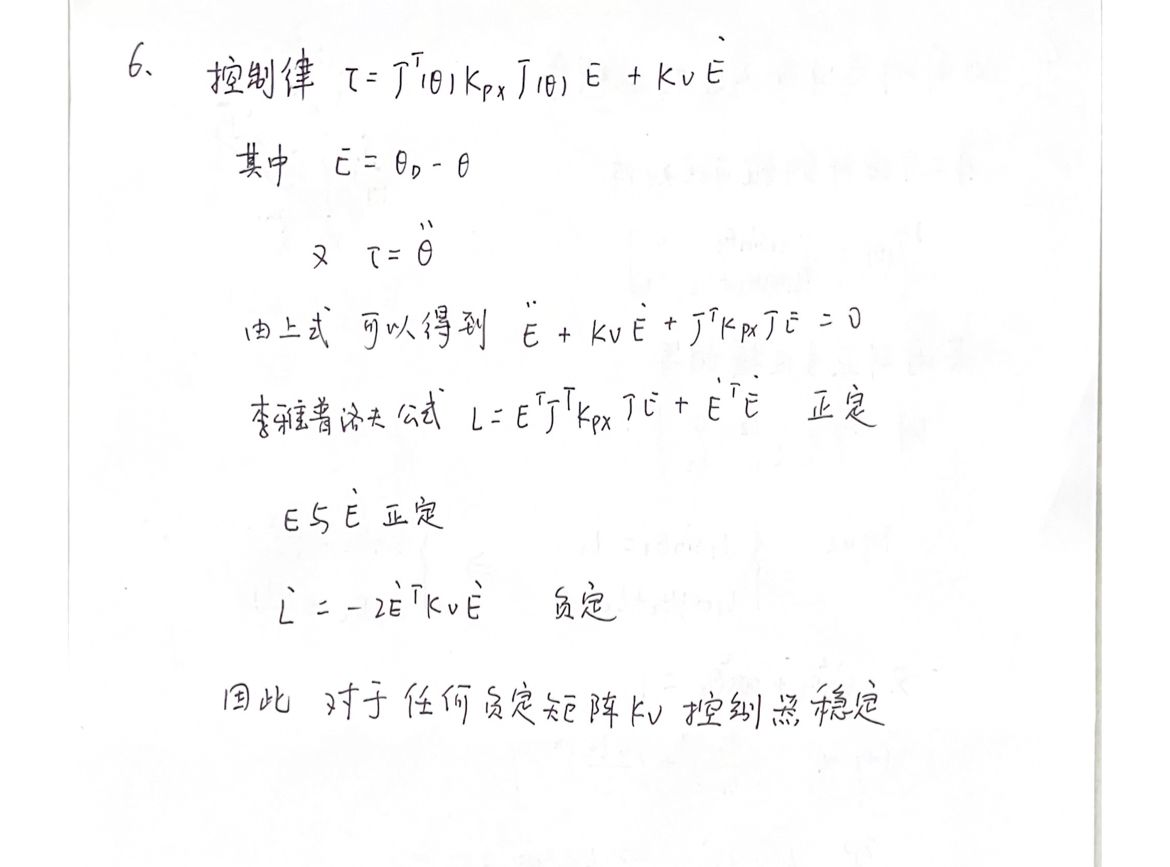 6、 控制律 τ = Jᵀ(θ) Kpx J(θ) E + Kv Ė
其中 E = θD - θ
又 τ = θ̈
由上式 可以得到 Ë + Kv Ė + Jᵀ Kpx J E = 0
李雅普洛夫公式 L = Eᵀ Jᵀ Kpx J E + Ėᵀ Ė 正定
E与Ė 正定
L̇ = - 2Ėᵀ Kv Ė 负定
因此 对于任何负定矩阵 Kv 控制器稳定